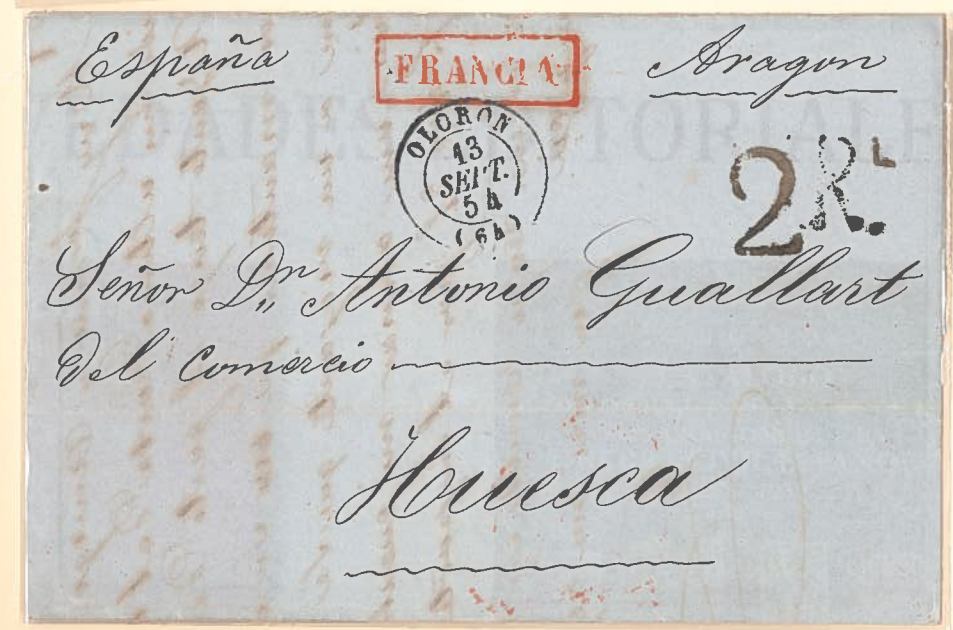 España FRANCIA Aragon
OLORON
13
SEPT.
54
(64)
2 R.L
Señor Dn Antonio Guallart
Del Comercio
Huesca